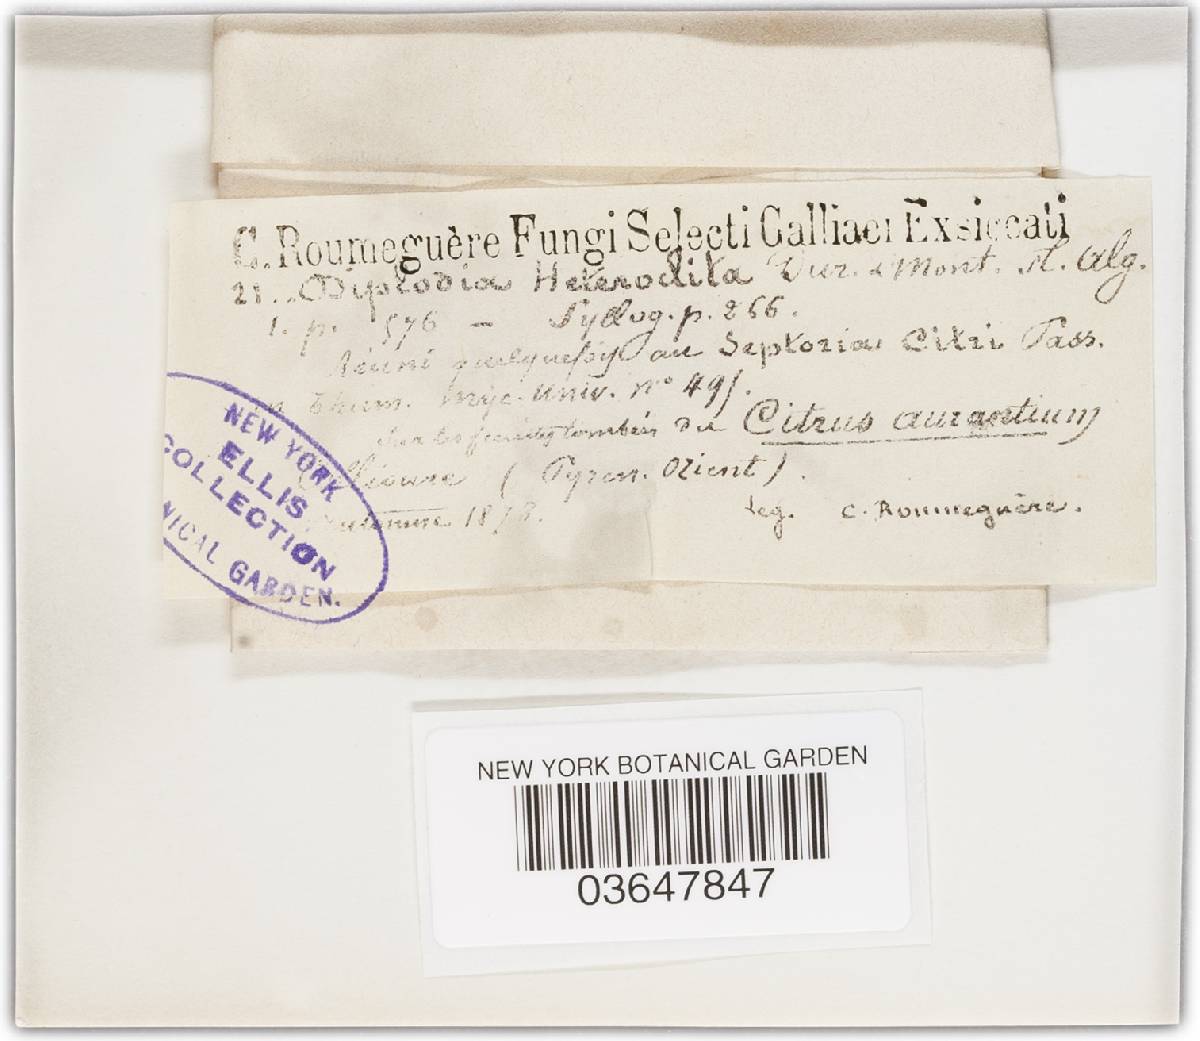 C. Roumeguère Fungi Selecti Galliaei Exsiccati
21.. Diplodia Heteroclita Dur. & Mont. fl. Alg.
1. p. 576 — Syllog. p. 266.
Réuni quelquefois au Septoria Citri Pass.
in Thüm. Myc. univ. no 491.
Sur les feuilles tombées du Citrus aurantium
Collioure (Pyren. Orient).
Automne 1878.
Leg. C. Roumeguère.
NEW YORK
ELLIS
COLLECTION
NICAL GARDEN.
NEW YORK BOTANICAL GARDEN
03647847